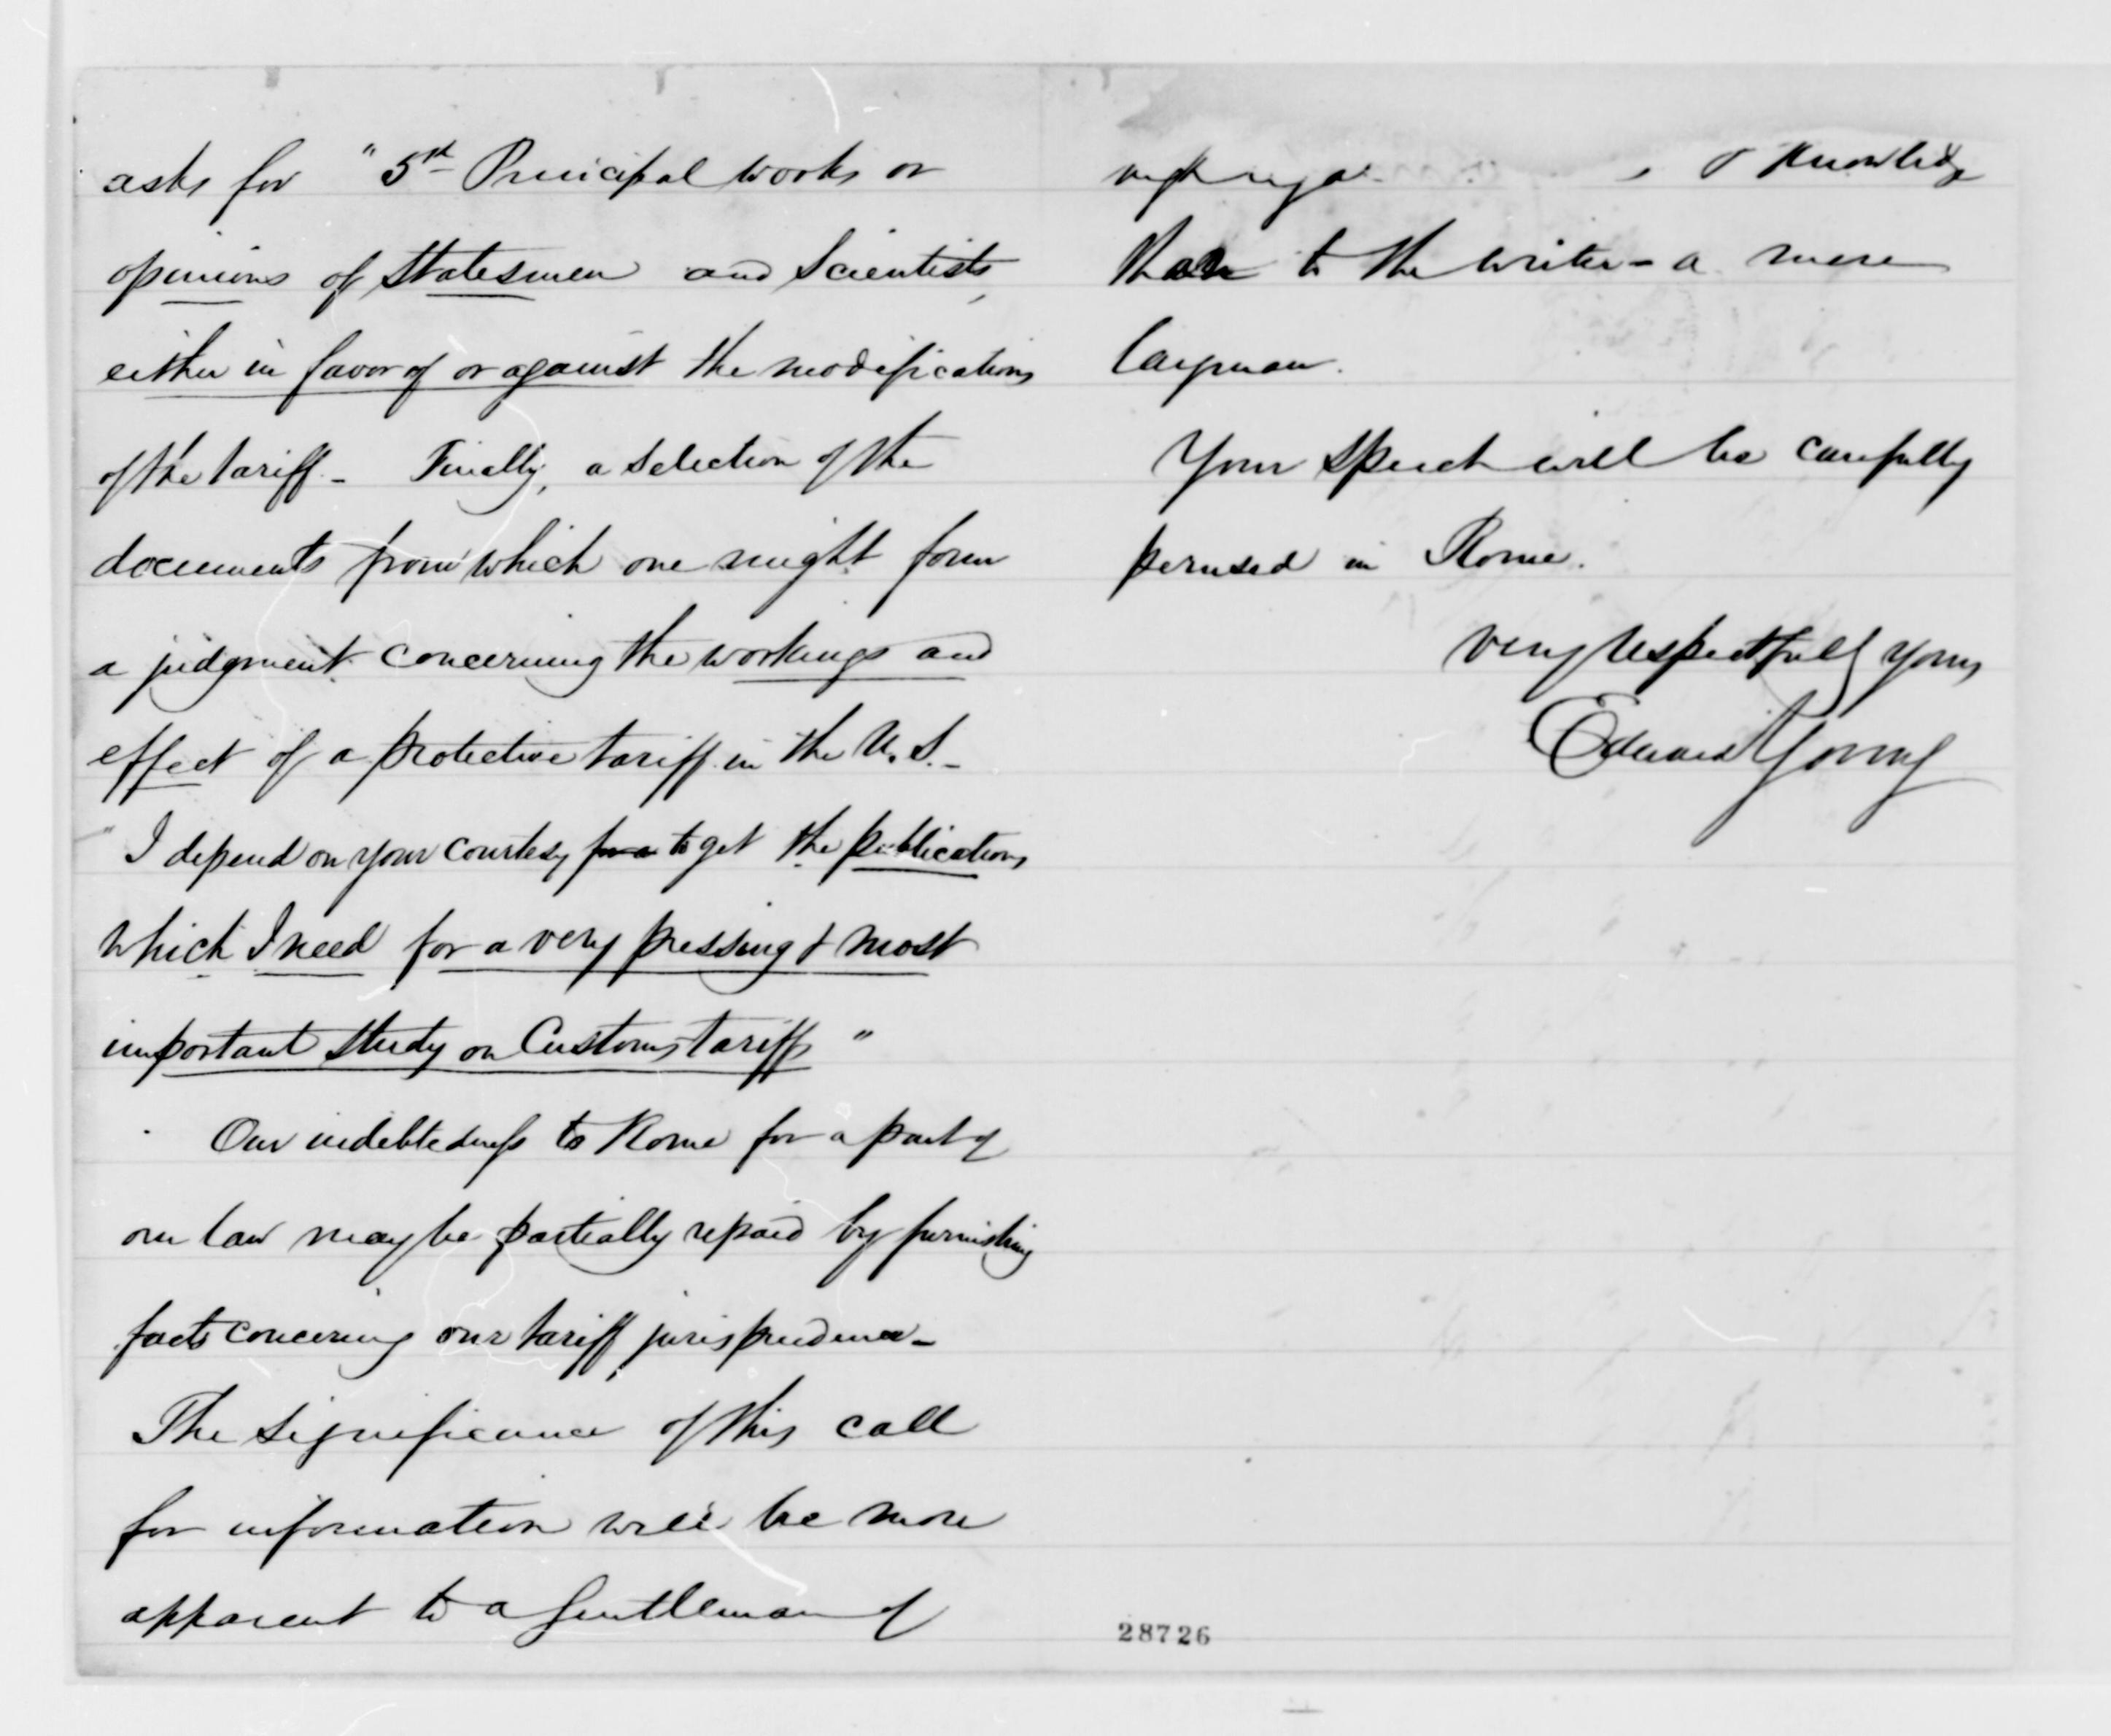 asks for " 5th Principal works or
opinions of Statesmen and Scientists,
either in favor of or against the modifications
of the tariff - Finally, a selection of the
documents from which one might form
a judgment concerning the workings and
effect of a protective tariff in the U. S. -
" I depend on your courtesy for to get the publications
which I need for a very pressing & most
important study on Customs tariffs "
Our indebtedness to Rome for a part of
our law may be partially repaid by furnishing
facts concerning our tariff jurisprudence -
The significance of this call
for information will be more
apparent to a gentleman of
& knowledge
than to the writer - a mere
layman.
Your speech will be carefully
perused in Rome.
Very respectfully yours,
Edward Young
28726